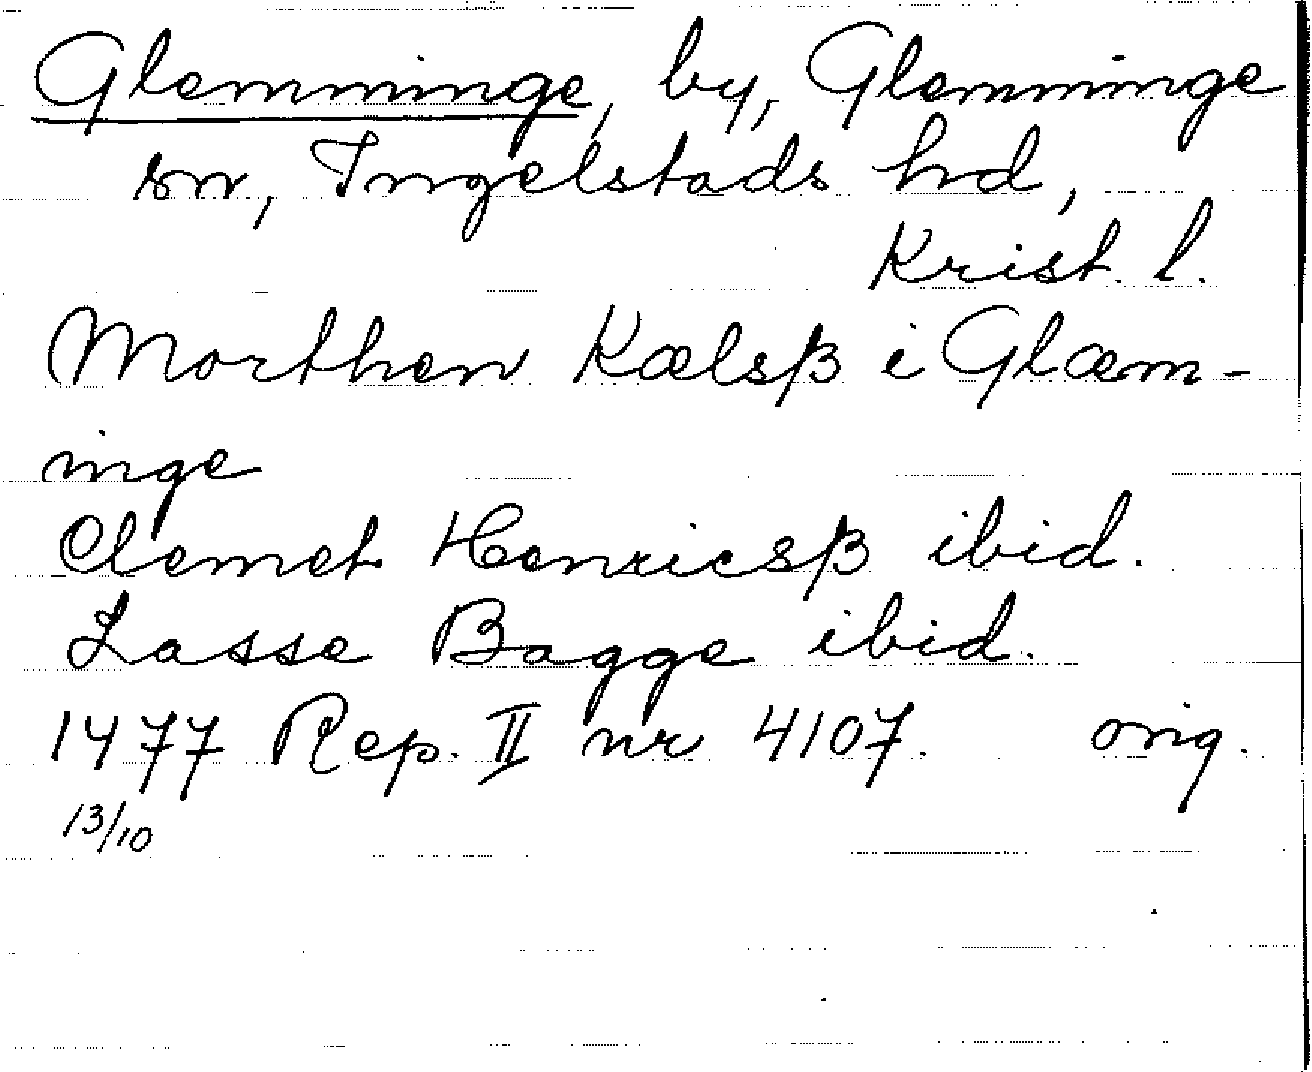 Glemminge, by, Glemminge
sn, Ingelstads hd,
Krist. l.
Morthen Kælsβ i Glæm-
inge
Clemet Henricsβ ibid.
Lasse Bagge ibid.
1477 Rep. II nr 4107. orig.
13/10